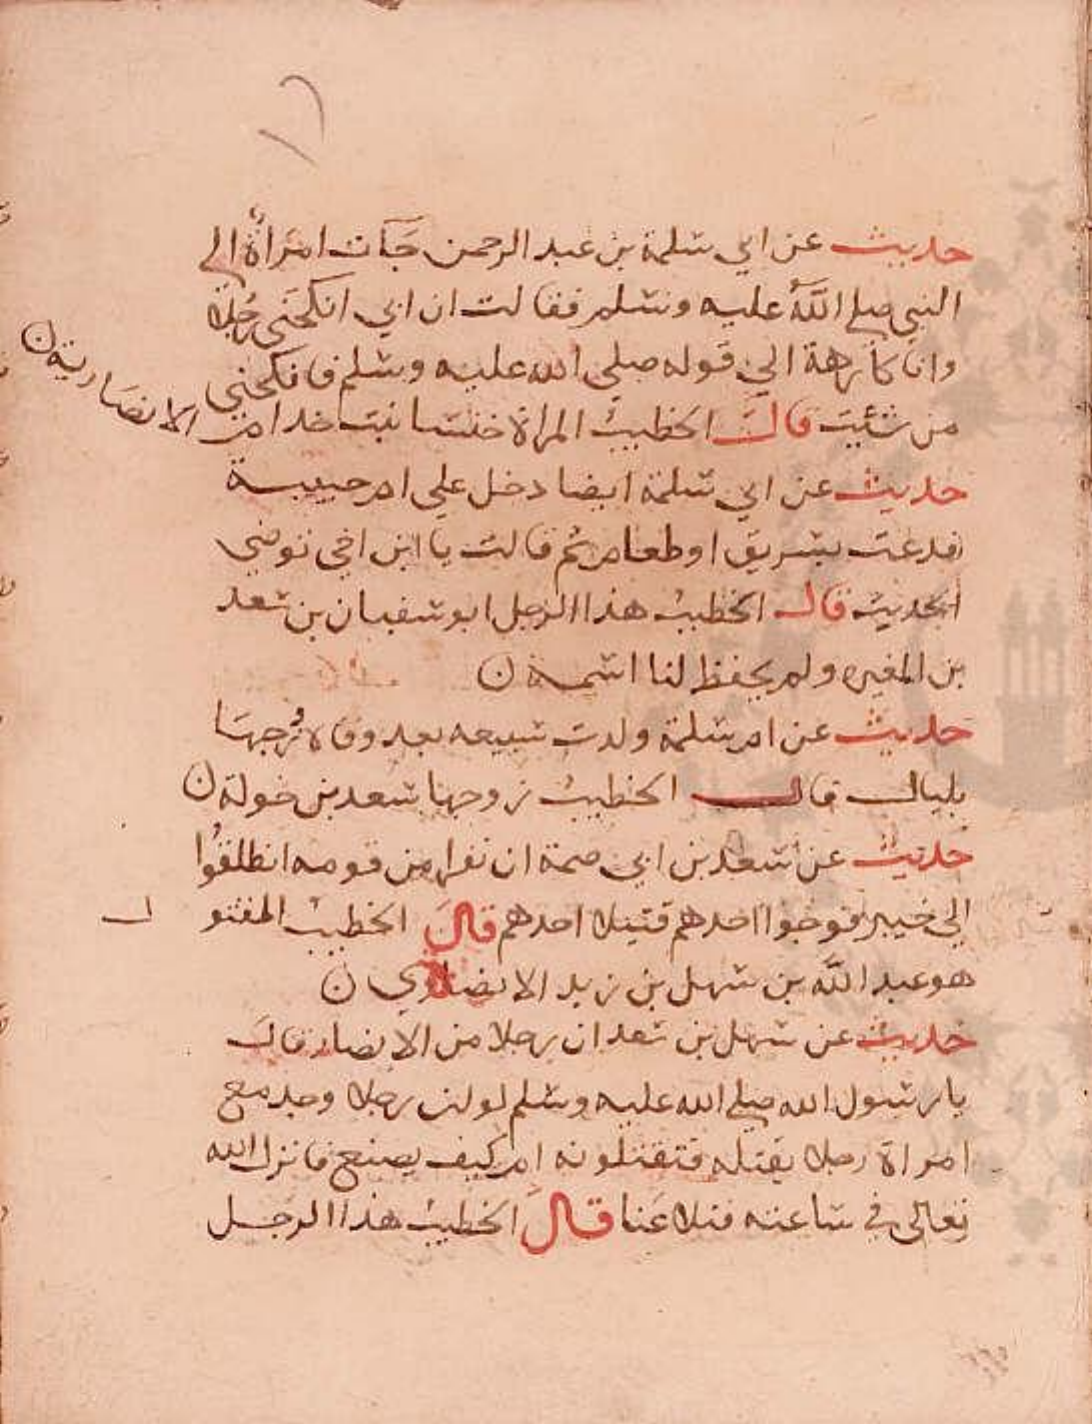 حديث عن ابي سلمة بن عبد الرحمن جآت امرأة الي
النبي صلي اللهُ عليه وسلم فقالت ان ابي انكحني رجلا
وانا كارهة الي قوله صلي الله عليه وسلم فانكحي
من شئت قالَ الخطيبُ المراة خنسا بنت خدام من الانصارية ن
حديث عن ابي سلمة ايضا دخل علي ام حبيبة
فدعت بسويق او طعام ثم قالت يا ابن اخي توضي
الحديث قال الخطيبُ هذا الرجل ابو سفيان بن سعد
بن المغيره ولم يحفظ لنا اسمه ن
حديث عن ام سلمة ولدت سبيعه بعد وفاة زوجها
بليال قال الخطيبُ زوجها سعد بن خولة ن
حديث عن سعد بن ابي حثمة ان نفرا من قومه انطلقوا
الي خيبر فوجدوا احدهم قتيلا احدهم قالَ الخطيبُ المقتو ل
هو عبد الله بن سهل بن زيد الانصاري ن
حديث عن سهل بن سعد ان رجلا من الانصار قالَ
يا رسول الله صلي الله عليه وسلم لو ان رجلا وجد مع
امراة رجلا يقتله فتقتلونه ام كيف يصنع فانزل الله
تعالى في ساعته فتلاعنا قالَ الخطيبُ هذا الرجل